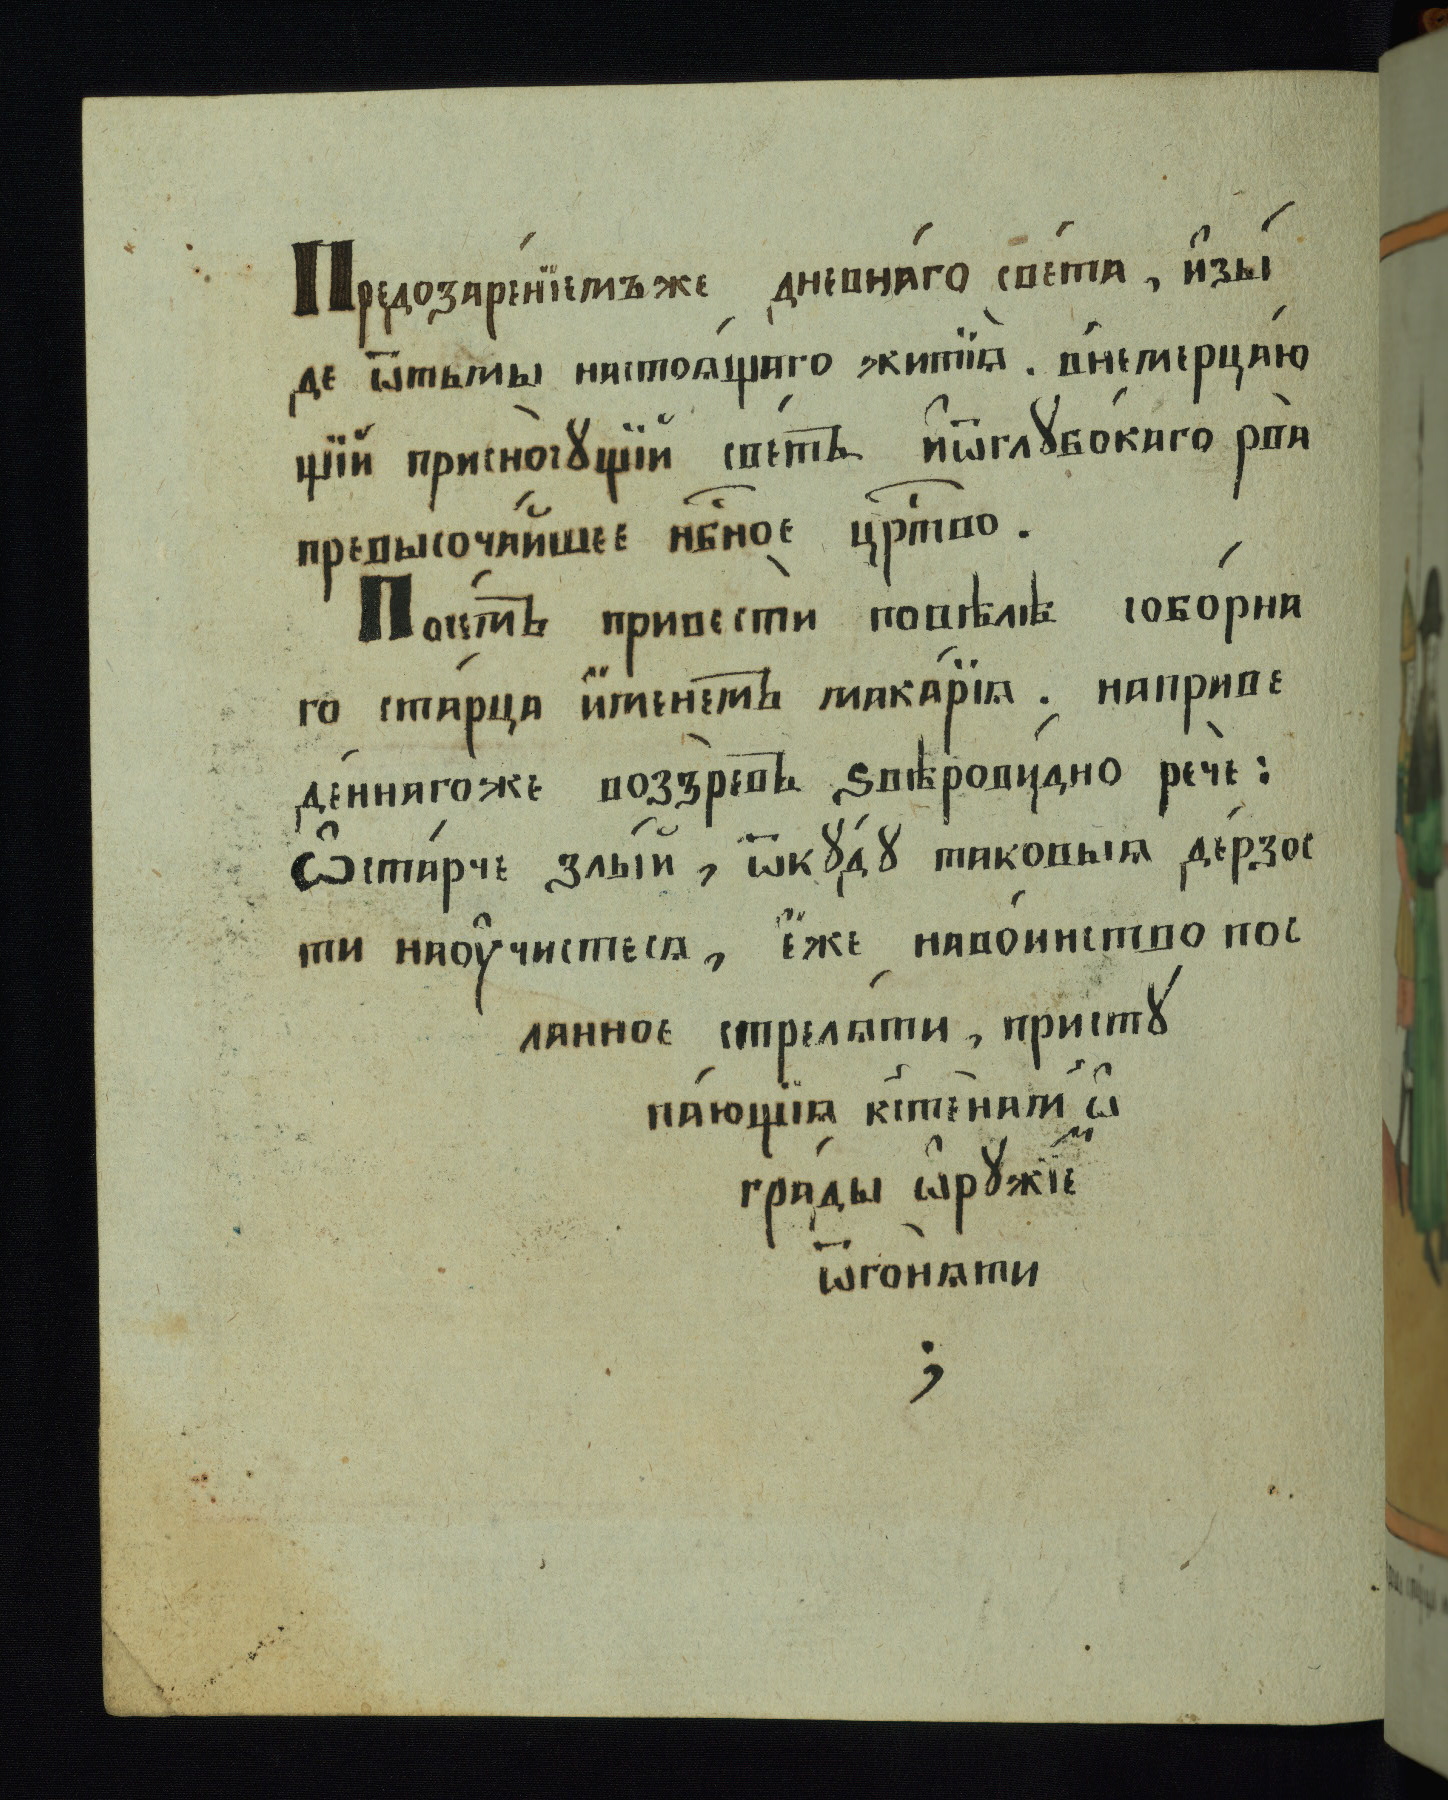 Предозаре́нїемъже дневна́го све́та, и҆зы́
де ѿтьмы настоѧ́щаго житїѧ̀. в́немерца́ю
щїй присносꙋ̀щїй све́тъ иѿглꙋбо́каго рва̀
превысоча́йшее нб҃ное црⷭ҇тво.
Посе́мъ привестѝ повѣлѣ собо́рна
го ста́рца и҆́менемъ мака́рїѧ. наприве
де́ннагоже возрѣ̀въ ѕвѣрови́дно речѐ:
Ѽста́рче злы́й, ѿкꙋ́дꙋ таковыѧ де́рзос
ти наоу҆чистесѧ, є҆́же наво́инство пос
ланное стрелѧ́ти, пристꙋ
па́ющїѧ кⸯстена́мⸯ ѡ҆
гра́ды ѡ҆рꙋ́жїеⷨ
ѿгонѧ̀ти
;